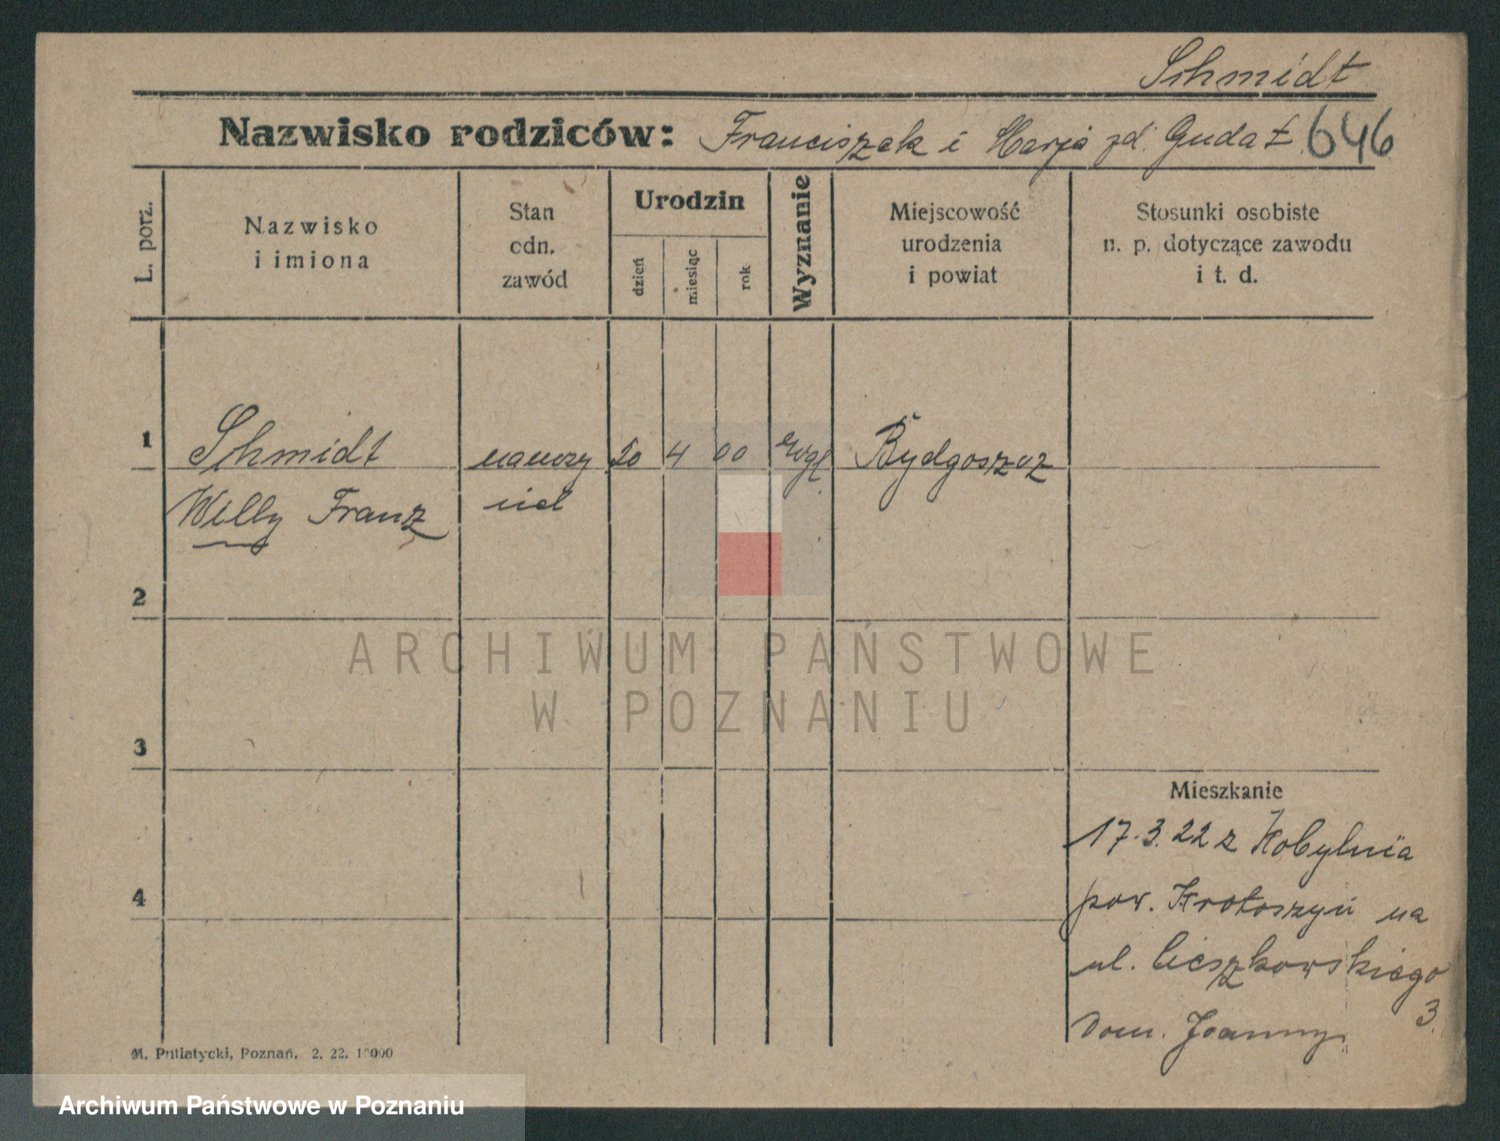 Schmidt
Nazwisko rodziców: Franciszek i Marja zd. Gudat 646
L. porz.
Nazwisko
i imiona
Stan
cdn.
zawód
Urodzin
dzień
miesiąc
rok
Wyznanie
Miejscowość
urodzenia
i powiat
Stosunki osobiste
n. p. dotyczące zawodu
i t. d.
1
Schmidt nauczy 20 4 00 ewgl. Bydgoszcz
Willy Franz ciel
2
ARCHIWUM PAŃSTWOWE
W POZNANIU
3
Mieszkanie
17.3.22 z Kobylnia
4
pow. Krotoszyn na
ul. Cieszkowskiego
3.
Dom. Joanny
M. Putiatycki, Poznań. 2. 22. 10000
Archiwum Państwowe w Poznaniu